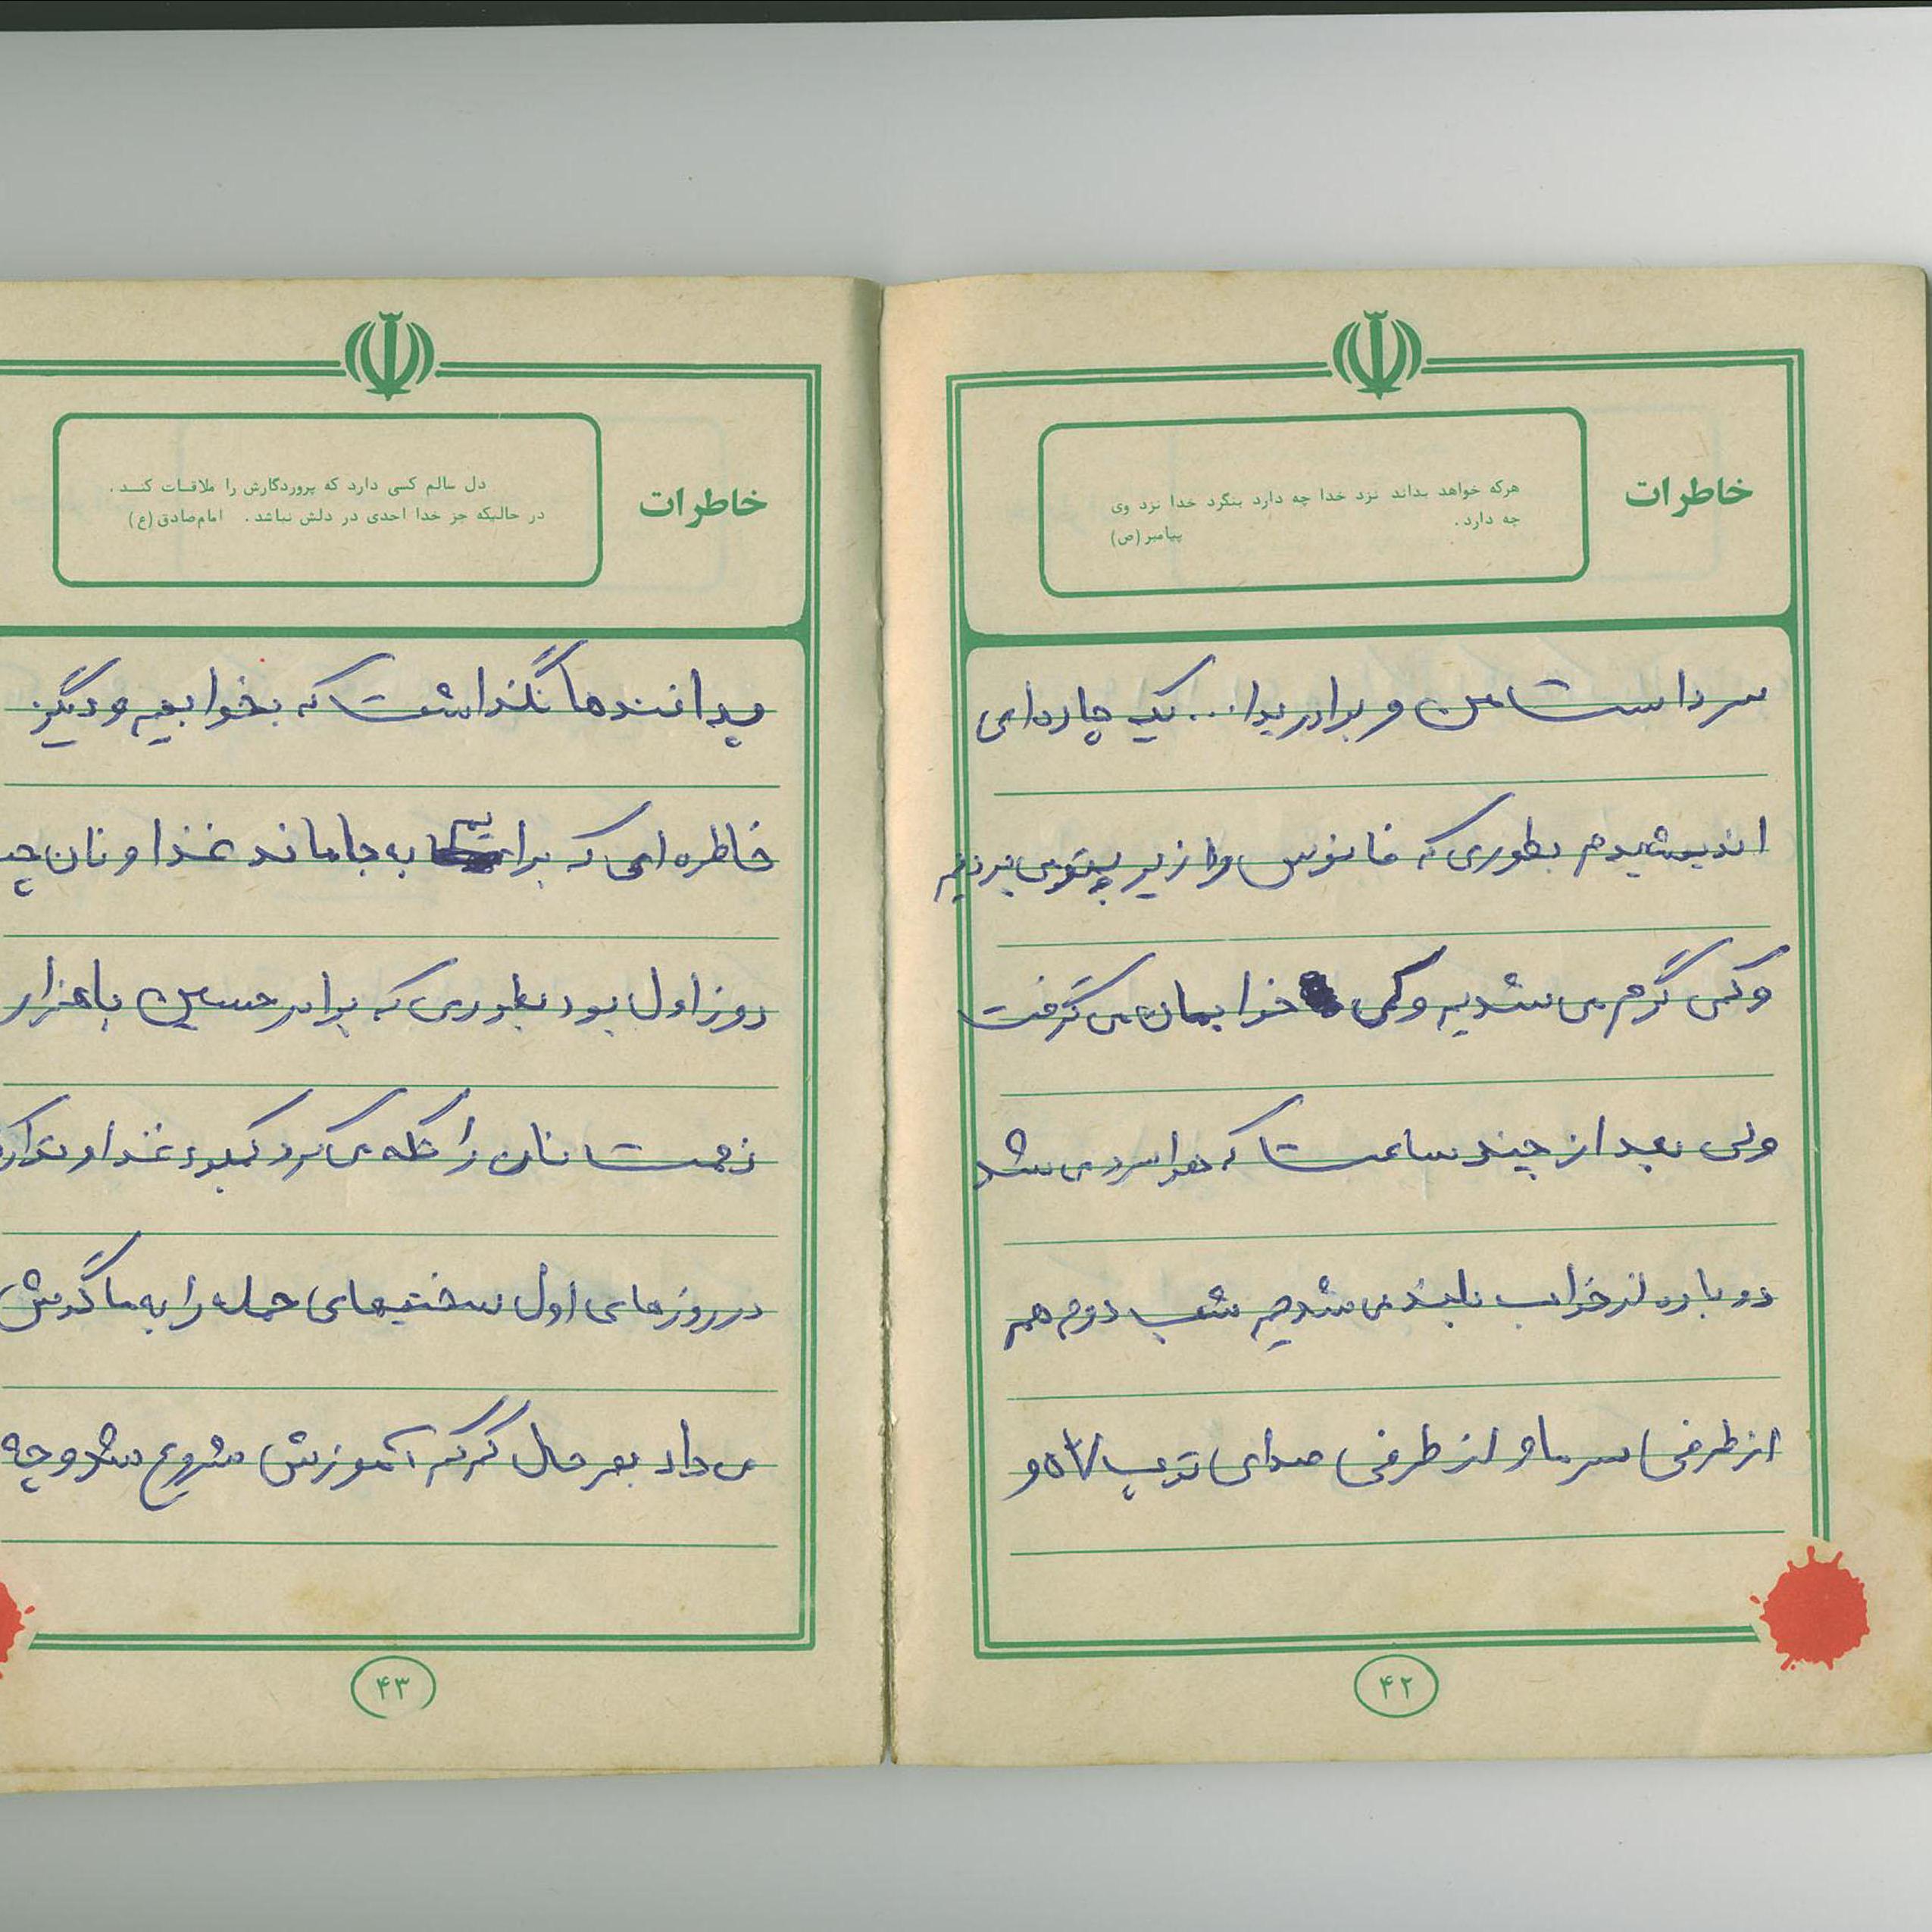 خاطرات
هرکه خواهد بداند نزد خدا چه دارد بنگرد خدا نزد وی
چه دارد.
پیامبر (ص)
سرد است من و برادر یدا... یک چاره‌ای
اندیشیدم بطوری که فانوس را زیر پتو می بردیم
و کمی گرم می شدیم و کمی خوابمان می گرفت
ولی بعد از چند ساعت که هوا سرد می شد
دوباره از خواب بلند می شدیم شب دوم هم
از طرفی سرما و از طرفی صدای توپ و
۴۲
خاطرات
دل سالم کسی دارد که پروردگارش را ملاقات کند.
در حالیکه جز خدا احدی در دلش نباشد. امام صادق (ع)
پدافندها نگذاشت که بخوابیم و دیگر
خاطره ای که برایم به جا ماند غذا و نان
روز اول بود بطوری که برادر حسین با هزار
زحمت نان را تکه می کرد کمبود غذا و تدارک
در روزهای اول سختیهای حمله را به ما گوش
می داد بهر حال کم کم آموزش شروع شد و چه
۴۳